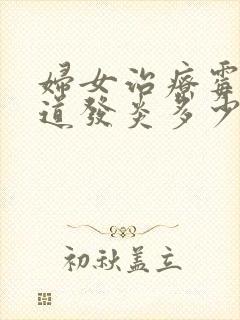 婦女治療霉
道發炎多少
初秋盖立